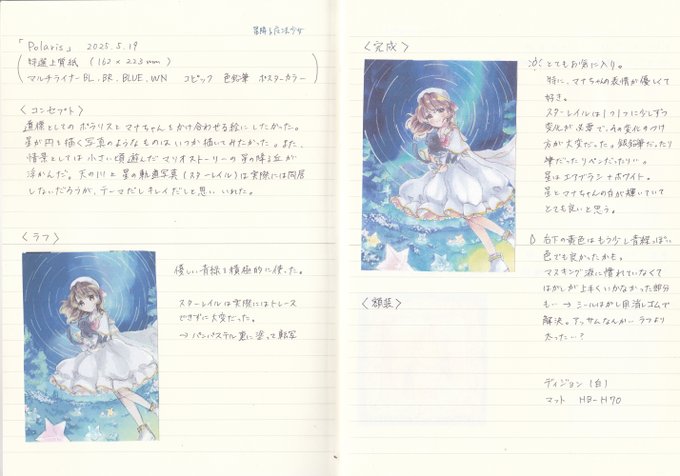 星降る魔法少女
「Polaris」 2025.5.19
特選上質紙 (162 × 223mm)
マルチライナーBL、BR、BLUE、WN コピック 色鉛筆 ポスターカラー
〈コンセプト〉
道標としてのポラリスとマナちゃんをかけ合わせる絵にしたかった。
星が円を描く写真のようなものはいつか描いてみたかった。また、
情景としては小さい頃遊んだマリオストーリーの星の降る丘が
浮かんだ。天の川と星の軌道写真(スターレイル)は実際には同居
しないだろうが、テーマだしキレイだしと思い、いれた。
〈ラフ〉
優しい青緑を積極的に使った。
スターレイルは実際にはトレース
できずに大変だった。
→パンパステル裏に塗って転写
〈完成〉
とてもお気に入り。
特に、マナちゃんの表情が優しくて
好き。
スターレイルは1つ1つに少しずつ
変化が必要で、その変化のつけ
方が大変だった。銀鉛筆だったり
筆だったりペンだったり…。
星はエアブラシ+ホワイト。
星とマナちゃんの白が輝いていて
とても良いと思う。
右下の黄色はもう少し青緑っぽい
色でも良かったかも。
マスキング液に慣れていなくて
はがしが上手くいかなかった部分
も…→シールはがし用消しゴムで
解決。アッサムなんか…ラフより
太った…?
〈額装〉
ディジョン(白)
マット HB-H70